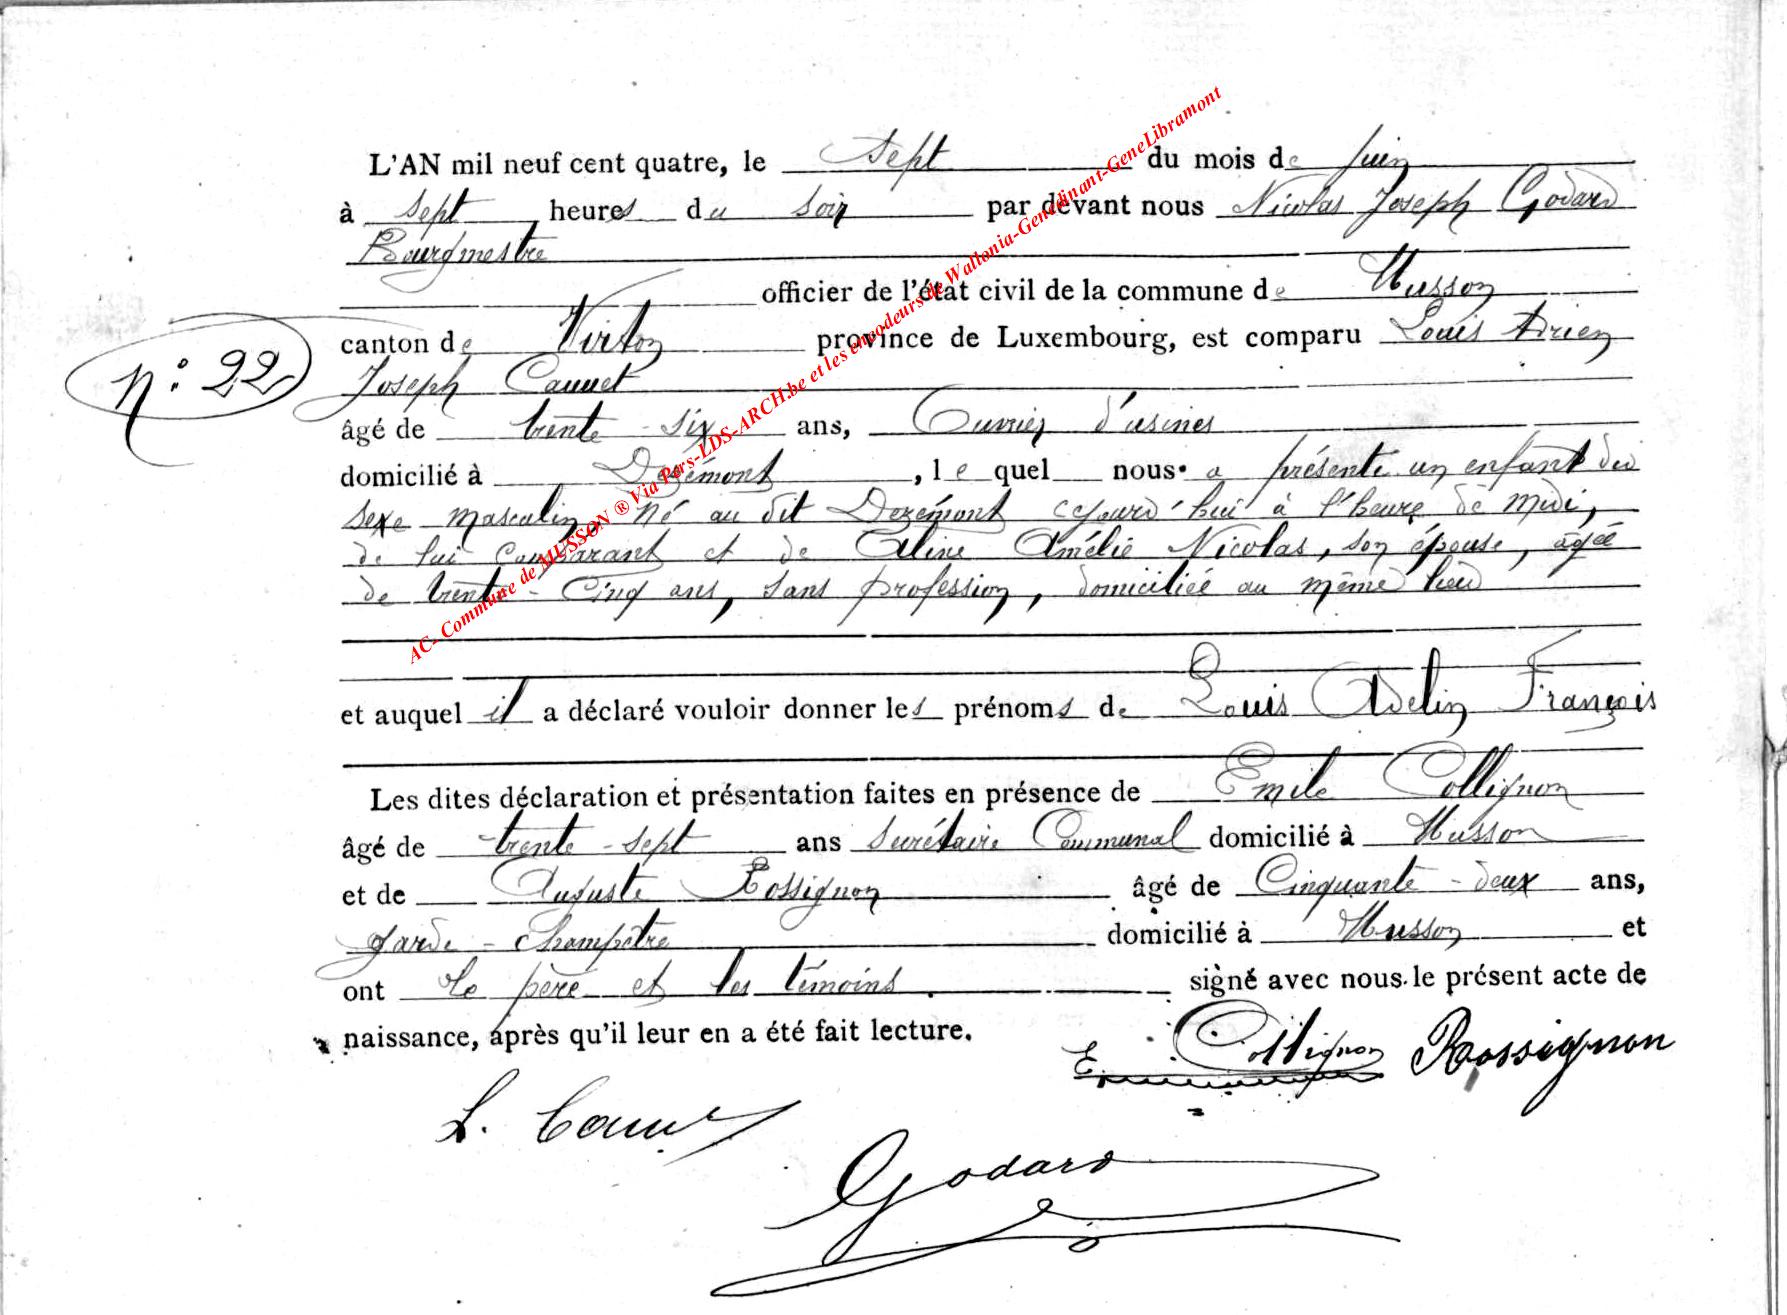 L'AN mil neuf cent quatre, le sept du mois de juin
à sept heures du soir par devant nous Nicolas Joseph Godard
Bourgmestre
officier de l'état civil de la commune de Musson
canton de Virton province de Luxembourg, est comparu Louis Adrien
N° 22
Joseph
âgé de trente-six ans, Ouvrier d'usines
domicilié à , le quel nous a présenté un enfant du
sexe masculin, né au dit cejourd'hui à l'heure de midi,
de lui comparant et de Aline Amélie Nicolas, son épouse, agée
de trente-cinq ans, sans profession, domiciliée au même lieu
et auquel il a déclaré vouloir donner les prénoms de Louis Adelin François
Les dites déclaration et présentation faites en présence de Emile Collignon
âgé de trente-sept ans Secrétaire Communal domicilié à Musson
et de Auguste Rossignon âgé de Cinquante-deux ans,
garde-Champêtre domicilié à Musson et
ont le père et les témoins signé avec nous le présent acte de
naissance, après qu'il leur en a été fait lecture.
E. Collignon Rossignon
L.
Godard
AC- Commune de MUSSON ® Via Pers-LDS-ARCH.be et les encodeurs de Wallonia-Genedinant-GeneLibramont